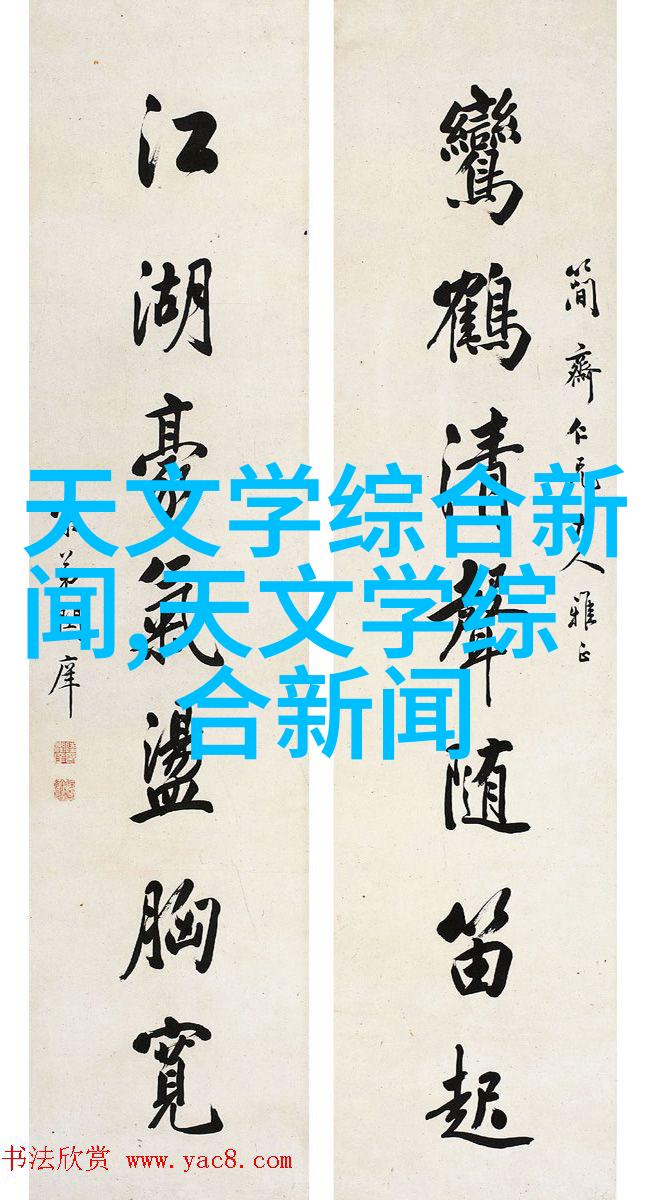 鸞鶴清聲随笛起
簡齋仁兄大人雅正
江湖豪氣盪胸寬
天文学综合新
闻,天文学综
合新闻
书法欣赏 www.yac8.com